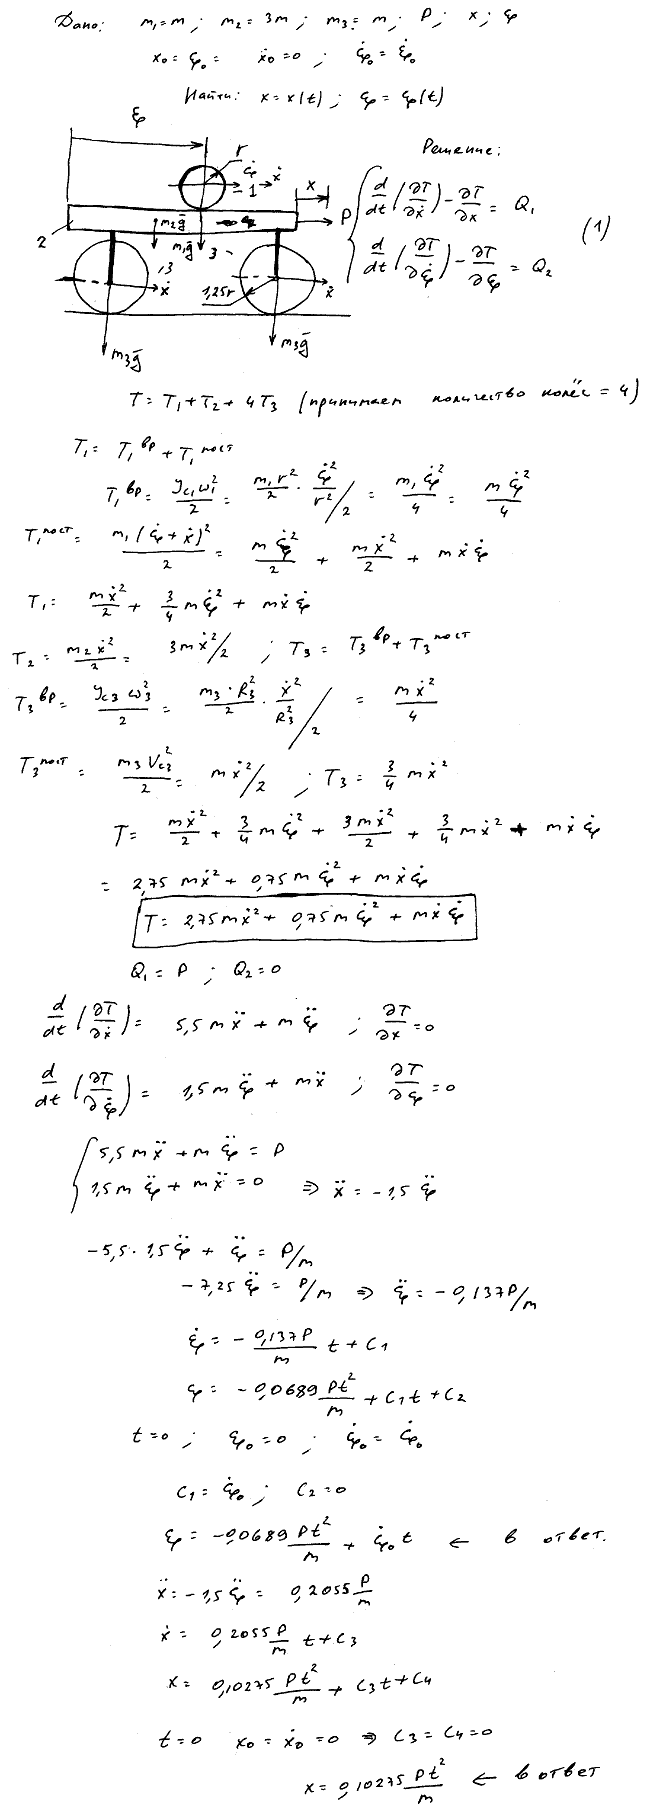 Дано: m₁=m; m₂=3m; m₃=m; P; x; ξ
x₀=ξ₀= ẋ₀=0; ξ̇₀=ξ̇₀
Найти: x=x(t); ξ=ξ(t)
ξ
r
ξ̇
1
ẋ
x
P
2
m₂g̅
m₁g̅
3
3
ẋ
1,25r
ẋ
m₃g̅
m₃g̅
Решение:
{ d/dt (∂T/∂ẋ) - ∂T/∂x = Q₁
d/dt (∂T/∂ξ̇) - ∂T/∂ξ = Q₂
(1)
T = T₁+T₂+4T₃ (принимаем количество колёс = 4)
T₁ = T₁ᵇᵖ + T₁ᵖᵒˢᵗ
T₁ᵇᵖ = Jc₁ω₁²/2 = m₁r²/2 · ξ̇²/r²/2 = m₁ξ̇²/4 = mξ̇²/4
T₁ᵖᵒˢᵗ = m₁(ξ̇+ẋ)²/2 = mξ̇²/2 + mẋ²/2 + mẋξ̇
T₁ = mẋ²/2 + 3/4 mξ̇² + mẋξ̇
T₂ = m₂ẋ²/2 = 3mẋ²/2 ; T₃ = T₃ᵇᵖ + T₃ᵖᵒˢᵗ
T₃ᵇᵖ = Jc₃ω₃²/2 = m₃·R₃²/2 · ẋ²/R₃²/2 = mẋ²/4
T₃ᵖᵒˢᵗ = m₃Vc₃²/2 = mẋ²/2 ; T₃ = 3/4 mẋ²
T = mẋ²/2 + 3/4 mξ̇² + 3mẋ²/2 + 3/4 mẋ² + mẋξ̇
= 2,75 mẋ² + 0,75 mξ̇² + mẋξ̇
T = 2,75mẋ² + 0,75mξ̇² + mẋξ̇
Q₁ = P ; Q₂ = 0
d/dt (∂T/∂ẋ) = 5,5mẍ + mξ̈ ; ∂T/∂x = 0
d/dt (∂T/∂ξ̇) = 1,5mξ̈ + mẍ ; ∂T/∂ξ = 0
{ 5,5mẍ + mξ̈ = P
1,5mξ̈ + mẍ = 0 ⇒ ẍ = -1,5ξ̈
-5,5·1,5ξ̈ + ξ̈ = P/m
-7,25ξ̈ = P/m ⇒ ξ̈ = -0,137P/m
ξ̇ = - 0,137P/m t + C₁
ξ = -0,0689 Pt²/m + C₁t + C₂
t=0 ; ξ₀=0 ; ξ̇₀=ξ̇₀
C₁=ξ̇₀ ; C₂=0
ξ = -0,0689 Pt²/m + ξ̇₀t ← в ответ.
ẍ = -1,5ξ̈ = 0,2055 P/m
ẋ = 0,2055 P/m t + C₃
x = 0,10275 Pt²/m + C₃t + C₄
t=0 x₀=ẋ₀=0 ⇒ C₃=C₄=0
x = 0,10275 Pt²/m ← в ответ